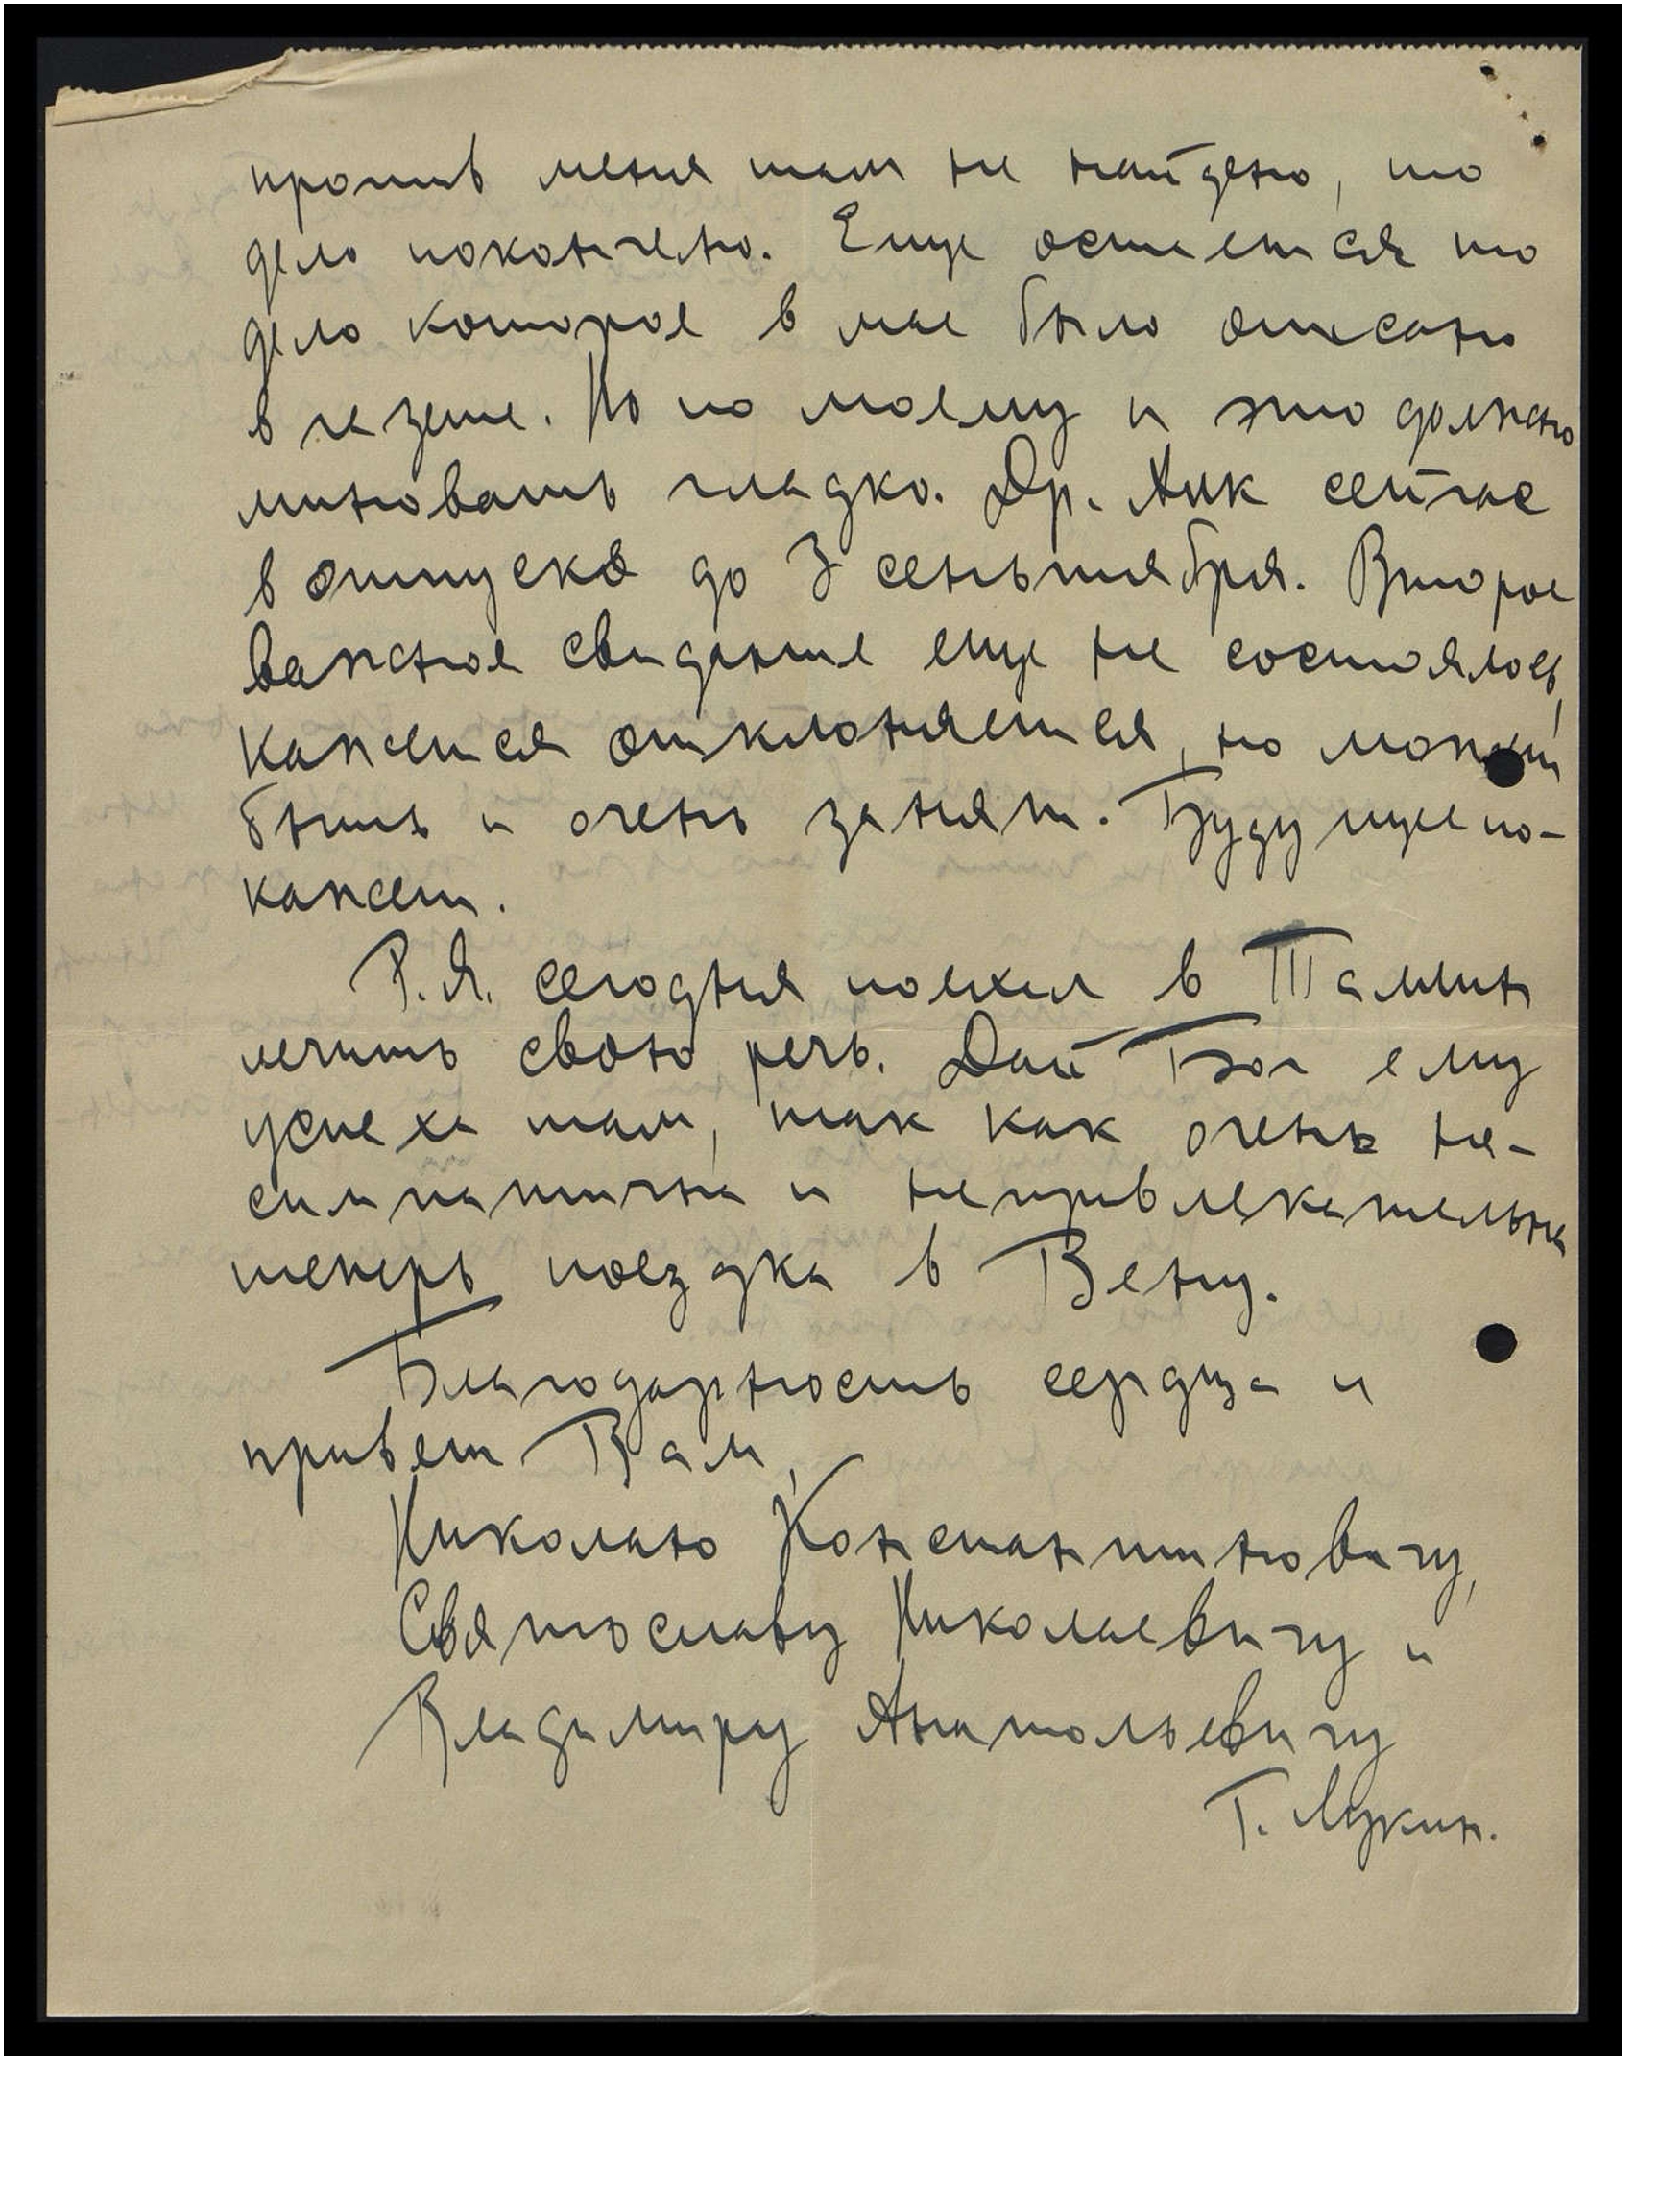 против меня там не найдено, то
дело покончено. Еще остается то
дело которое в мае было описано
в газете. Но по моему и это должно
миновать гладко. Др. Аик сейчас
в отпуске до 3 сентьтября. Второе
важное свидание еще не состоялось,
кажется отклоняется, но может
быть и очень занят. Будущее по-
кажет.
Р.Я. сегодня поехал в Таллин
лечить свою речь. Дай Бог ему
успеха там, так как очень не-
симпатична и непривлекательна
теперь поездка в Вену.
Благодарность сердца и
привет Вам,
Николаю Константиновичу,
Святославу Николаевичу и
Владимиру Анатольевичу
Г. Лукин.